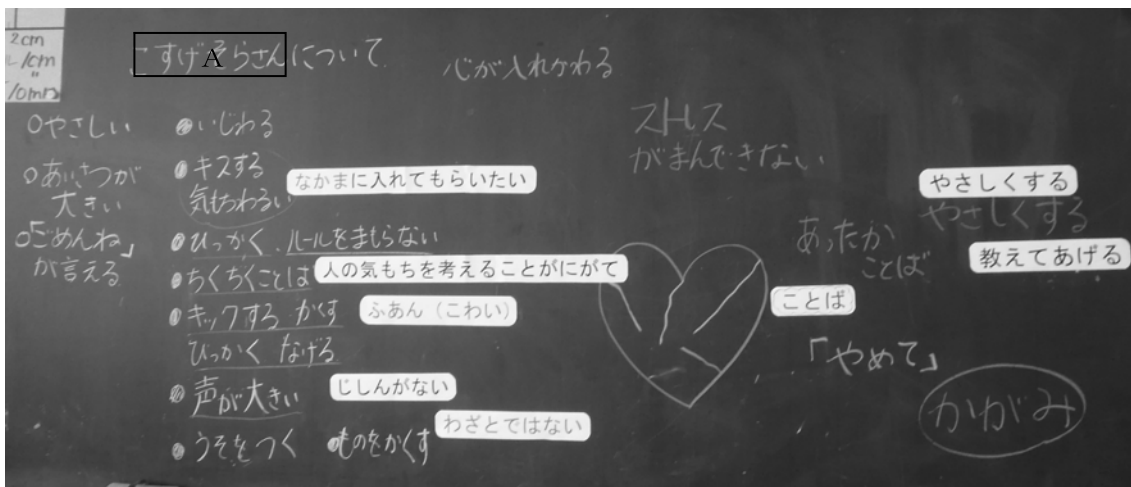 2cm
1cm
〃
10mm
A さんについて
心が入れかわる
○やさしい
○あいさつが
大きい
○「ごめんね」
が言える
●いじわる
●キスする
気もちわるい
なかまに入れてもらいたい
●ひっかく、ルールをまもらない
●ちくちくことば
人の気もちを考えることがにがて
●キックする かくす
ふあん（こわい）
ひっかく なげる
●声が大きい
じしんがない
●うそをつく ●ものをかくす
わざとではない
ストレス
がまんできない
やさしくする
やさしくする
あったか
ことば
教えてあげる
ことば
「やめて」
かがみ